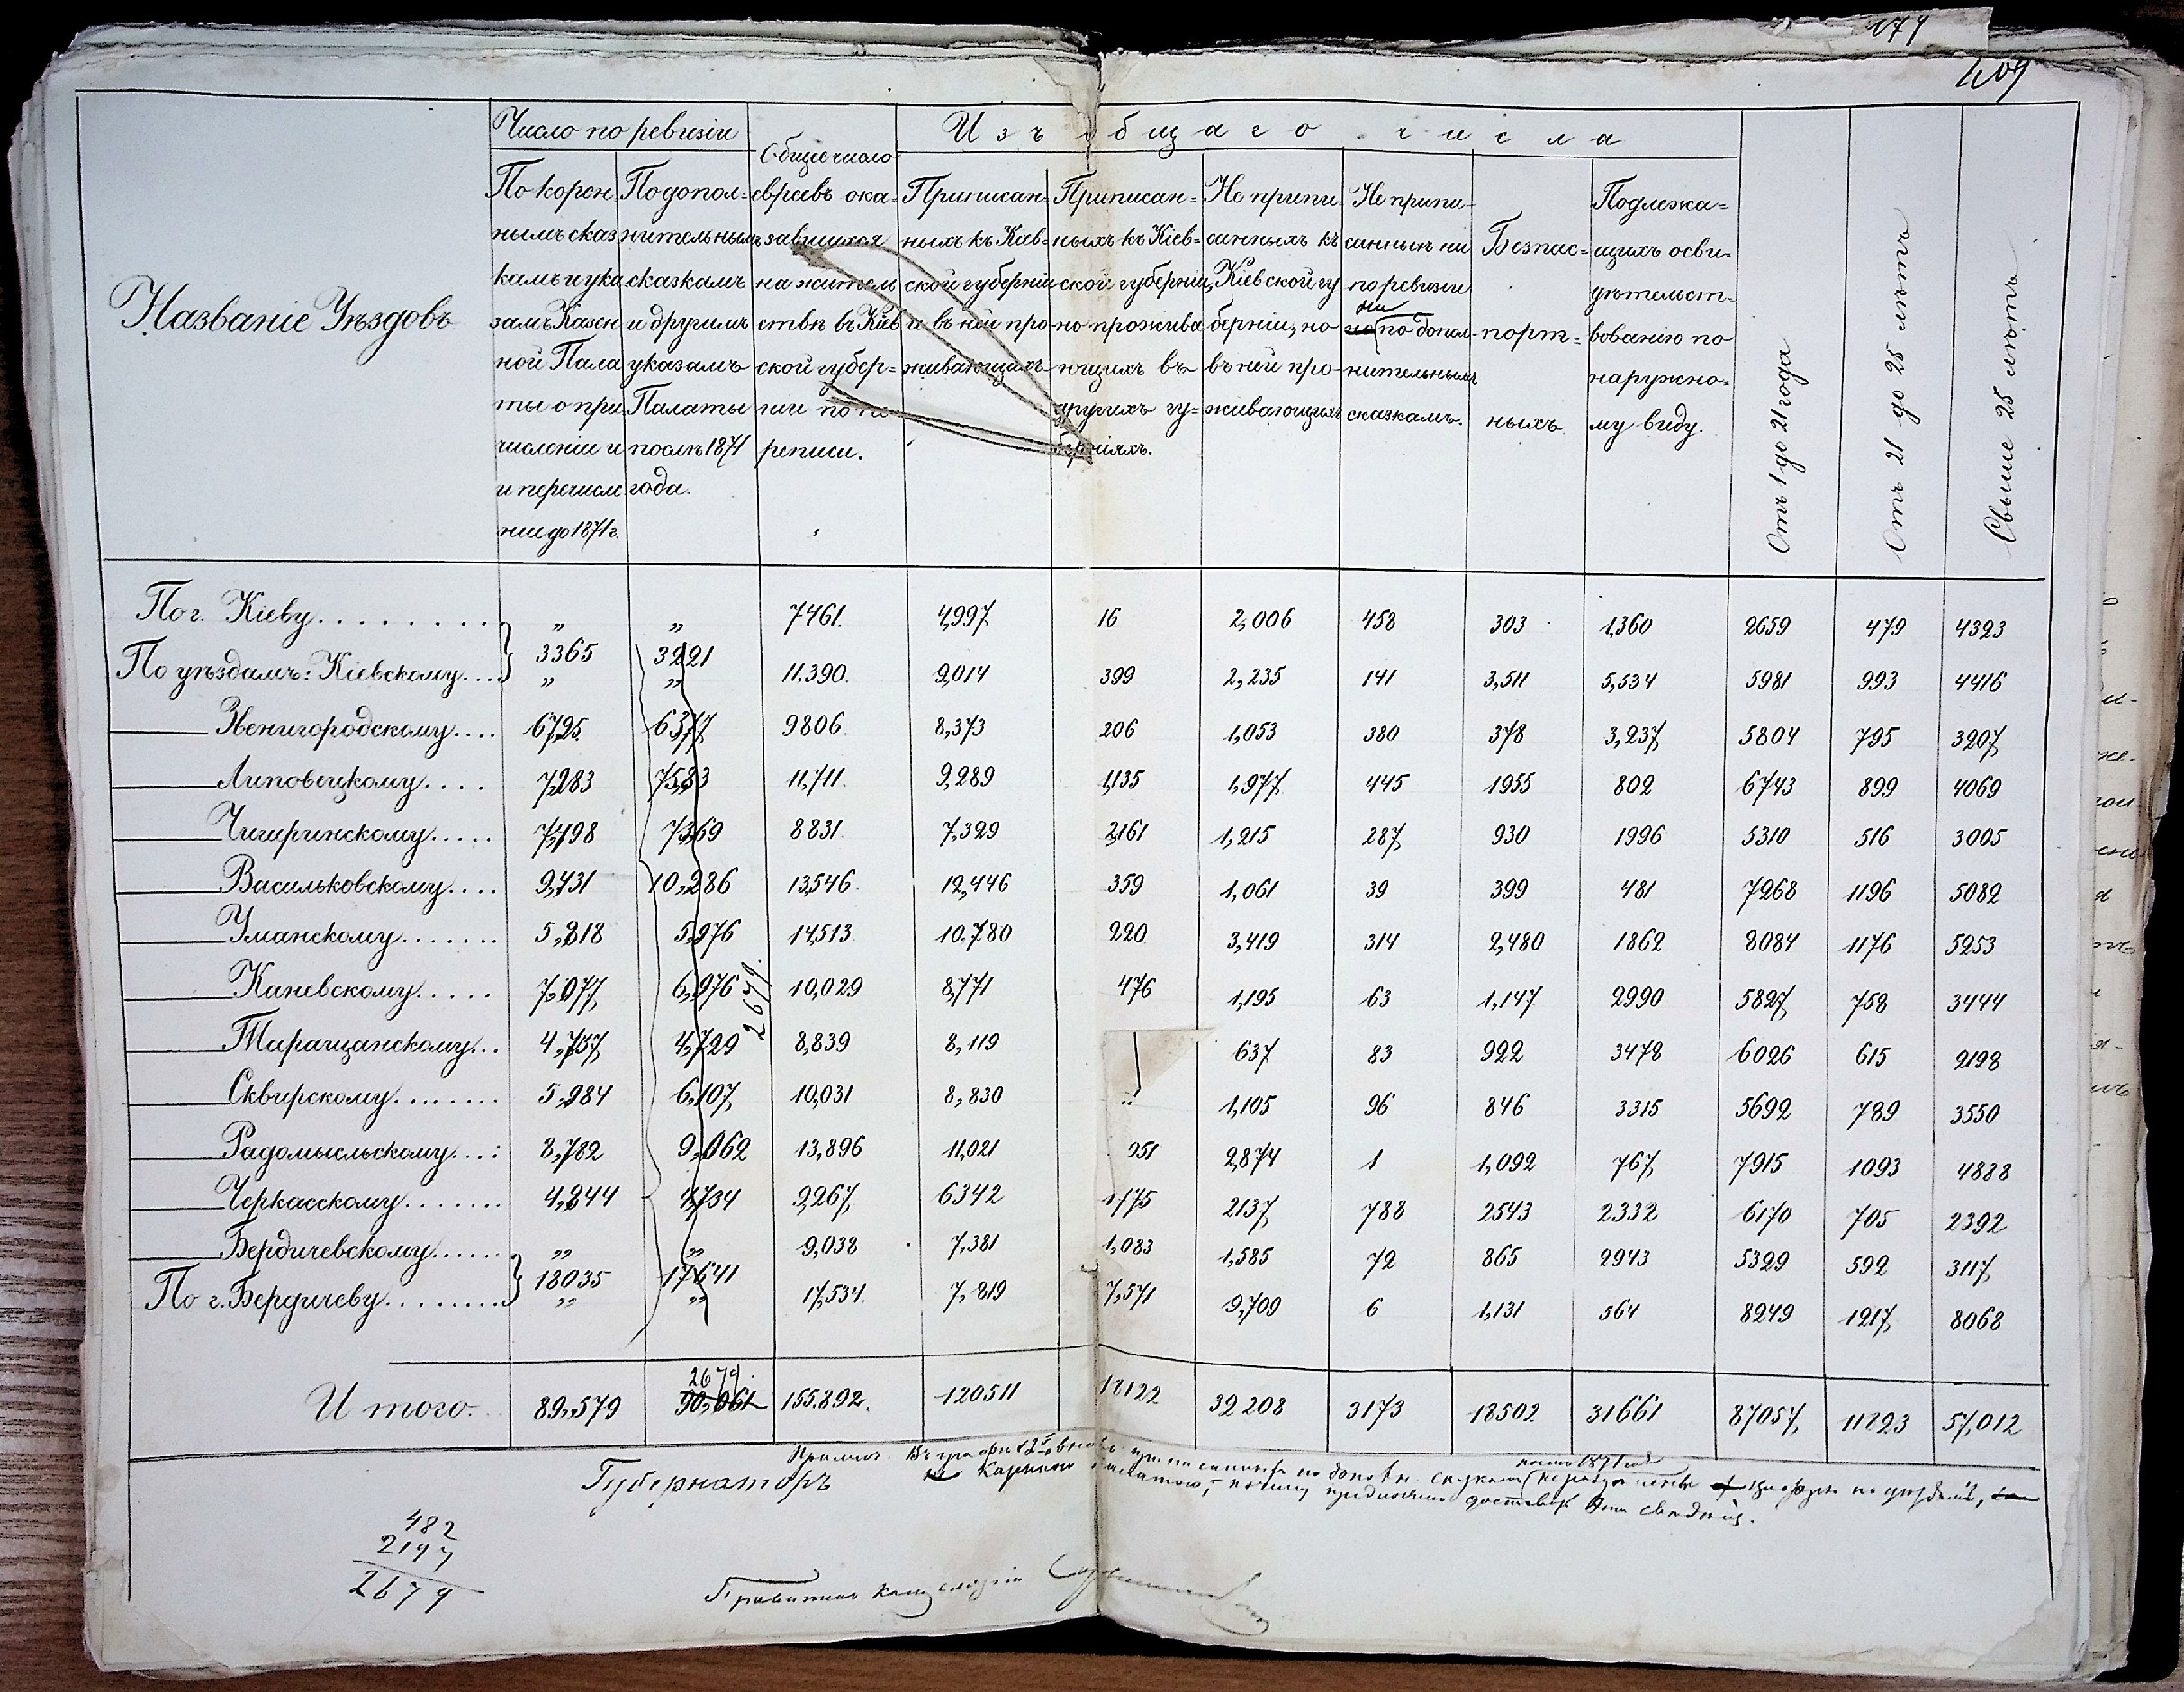 174
409
Число по ревизіи
Изъ общаго числа
Названіе Уѣздовъ
По корен
нымъ сказ
камъ и ука
замъ Казен
ной Пала
ты о при
численіи и
и перечисле
ніи до 1871 г.
По допол=
нительнымъ
сказкамъ
и другимъ
указамъ
Палаты
послѣ 1871
года.
Общее число
евреевъ ока=
завшихся
на житель
ствѣ въ Кіев
ской губер=
ніи по пе
реписи.
Приписан=
ныхъ къ Кіев=
ской губерніи
и въ ней про
живающихъ
Приписан=
ныхъ къ Кіев=
ской губерніи,
но прожива
ющихъ въ
другихъ гу=
берніяхъ.
Не припи=
санныхъ къ
Кіевской гу
берніи, но
въ ней про=
живающихъ
Не припи-
санныхъ ни
по ревизіи
ни
по допол=
нительнымъ
сказкамъ.
Безпас=
порт=
ныхъ
Подлежа=
щихъ осви=
дѣтельст=
вованію по
наружно=
му виду.
Отъ 1 до 21 года
Отъ 21 до 25 лѣтъ
Свыше 25 лѣтъ
По г. Кіеву......... „ „ 7461. 4,997. 16 2,006 458 303 1,360 2659 479 4323
3365 3221
По уѣздамъ: Кіевскому... „ „ 11.390. 9,014 399 2,235 141 3,511 5,534 5981 993 4416
Звенигородскому.... 6,725. 6377, 9806. 8,373 206 1,053 380 378 3,237, 5804 795 3207,
Липовецкому.... 7,283 7583 11,711. 9,289 1,135 1,977. 445 1955 802 6743 899 4069
Чигиринскому..... 7,498 7,369 8831. 7,329 2,161 1,215 287, 930 1996 5310 516 3005
Васильковскому.... 9,431 10,286 13,546. 12,446 359 1,061 39 399 481 7268 1196 5082
Уманскому....... 5,218 5,976 14,513. 10.780 220 3,419 314 2,480 1862 8084 1176 5253
Каневскому..... 7,077, 6,976 10,029 8,771 476 1,195 63 1,147 2990 5827, 758 3444
2679.
Таращанскому... 4,737, 4,729 8,839 8,119 637 83 922 3478 6026 615 2198
Сквирскому........ 5,984 6,107, 10,031 8,830 1,105 96 846 3315 5692 789 3550
Радомысльскому...: 8,782 9,062 13,896 11,021 951 2,874 1 1,092 767, 7915 1093 4888
Черкасскому....... 4,844 4,734 9,267, 6342 1,175 2137, 788 2543 2332 6170 705 2392
Бердичевскому...... „ „ 9,038 7,381 1,083 1,585 72 865 2943 5329 592 3117,
18035 17641
По г. Бердичеву........ „ „ 17,534. 7,819 7,571 9,709 6 1,131 564 8249 1217, 8068
2679.
Итого. 89,579 90,061 155.892. 120511 18122 32 208 3173 18502 31661 87057, 11823 57,012
Губернаторъ
482
2197
2679
Правитель канцеляріи